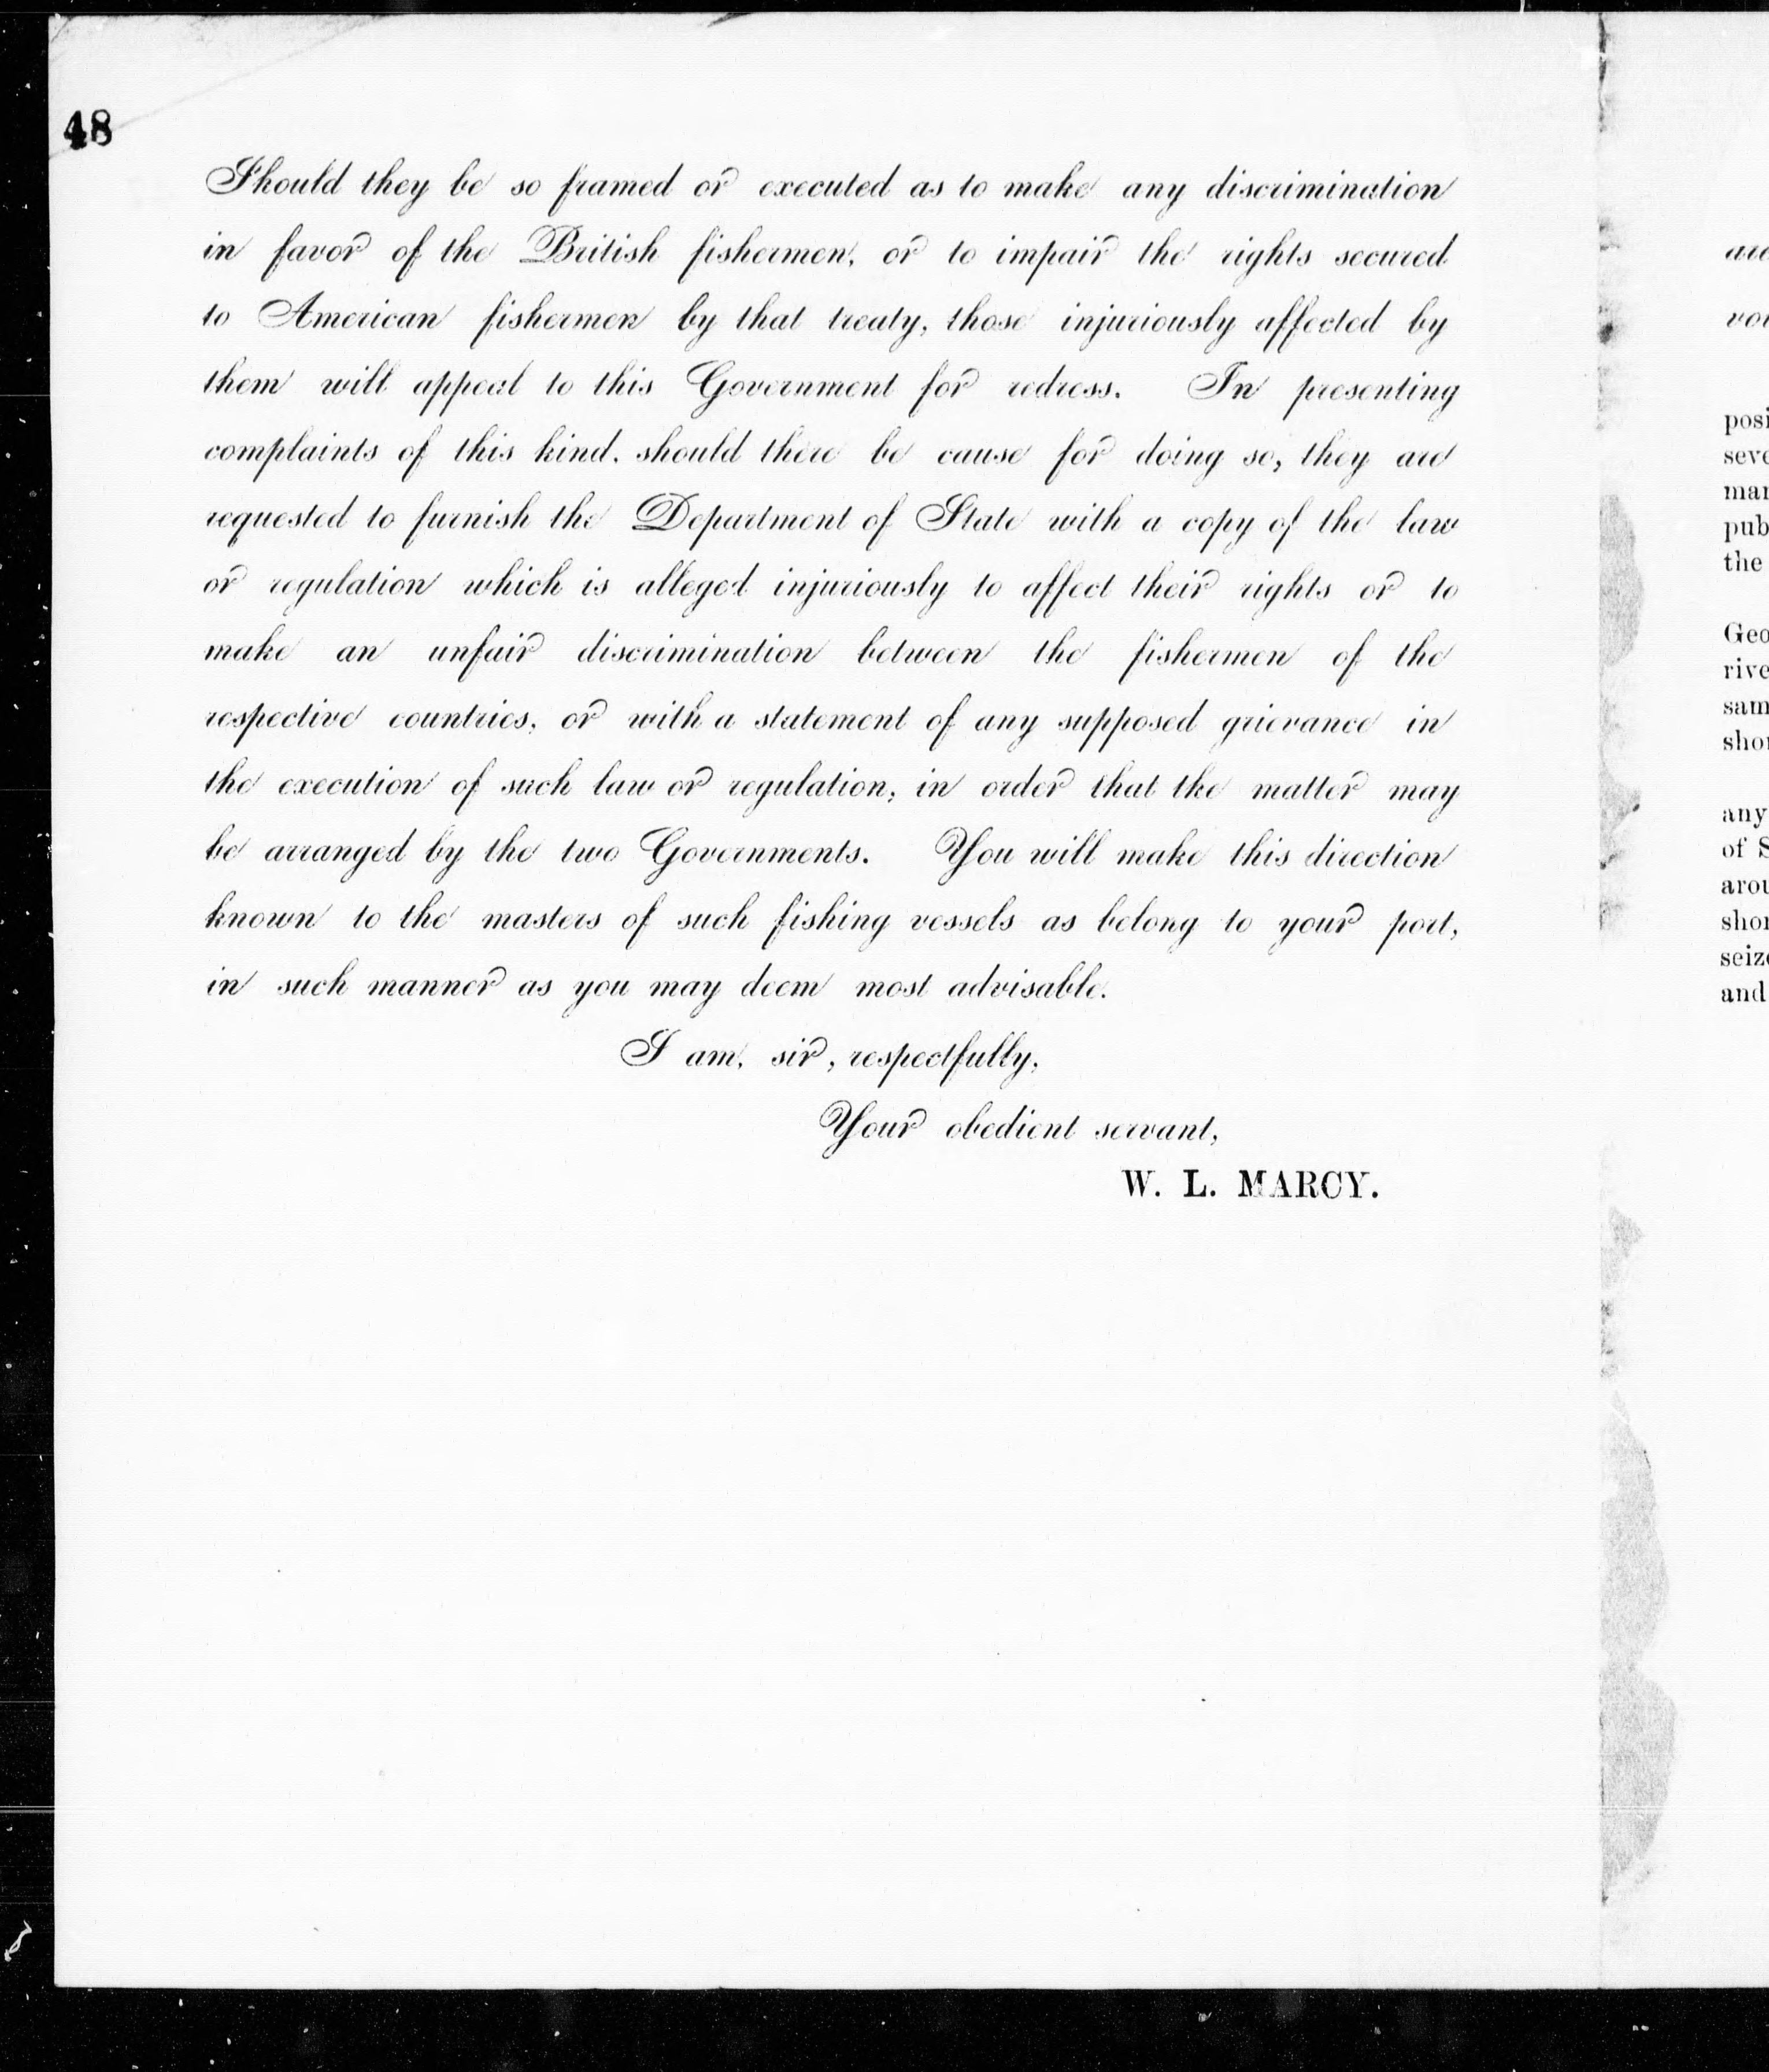 48
Should they be so framed or executed as to make any discrimination
in favor of the British fishermen, or to impair the rights secured
to American fishermen by that treaty, those injuriously affected by
them will appeal to this Government for redress. In presenting
complaints of this kind, should there be cause for doing so, they are
requested to furnish the Department of State with a copy of the law
or regulation which is alleged injuriously to affect their rights or to
make an unfair discrimination between the fishermen of the
respective countries, or with a statement of any supposed grievance in
the execution of such law or regulation, in order that the matter may
be arranged by the two Governments. You will make this direction
known to the masters of such fishing vessels as belong to your port,
in such manner as you may deem most advisable.
I am, sir, respectfully,
Your obedient servant,
W. L. MARCY.
the
any
of S
and